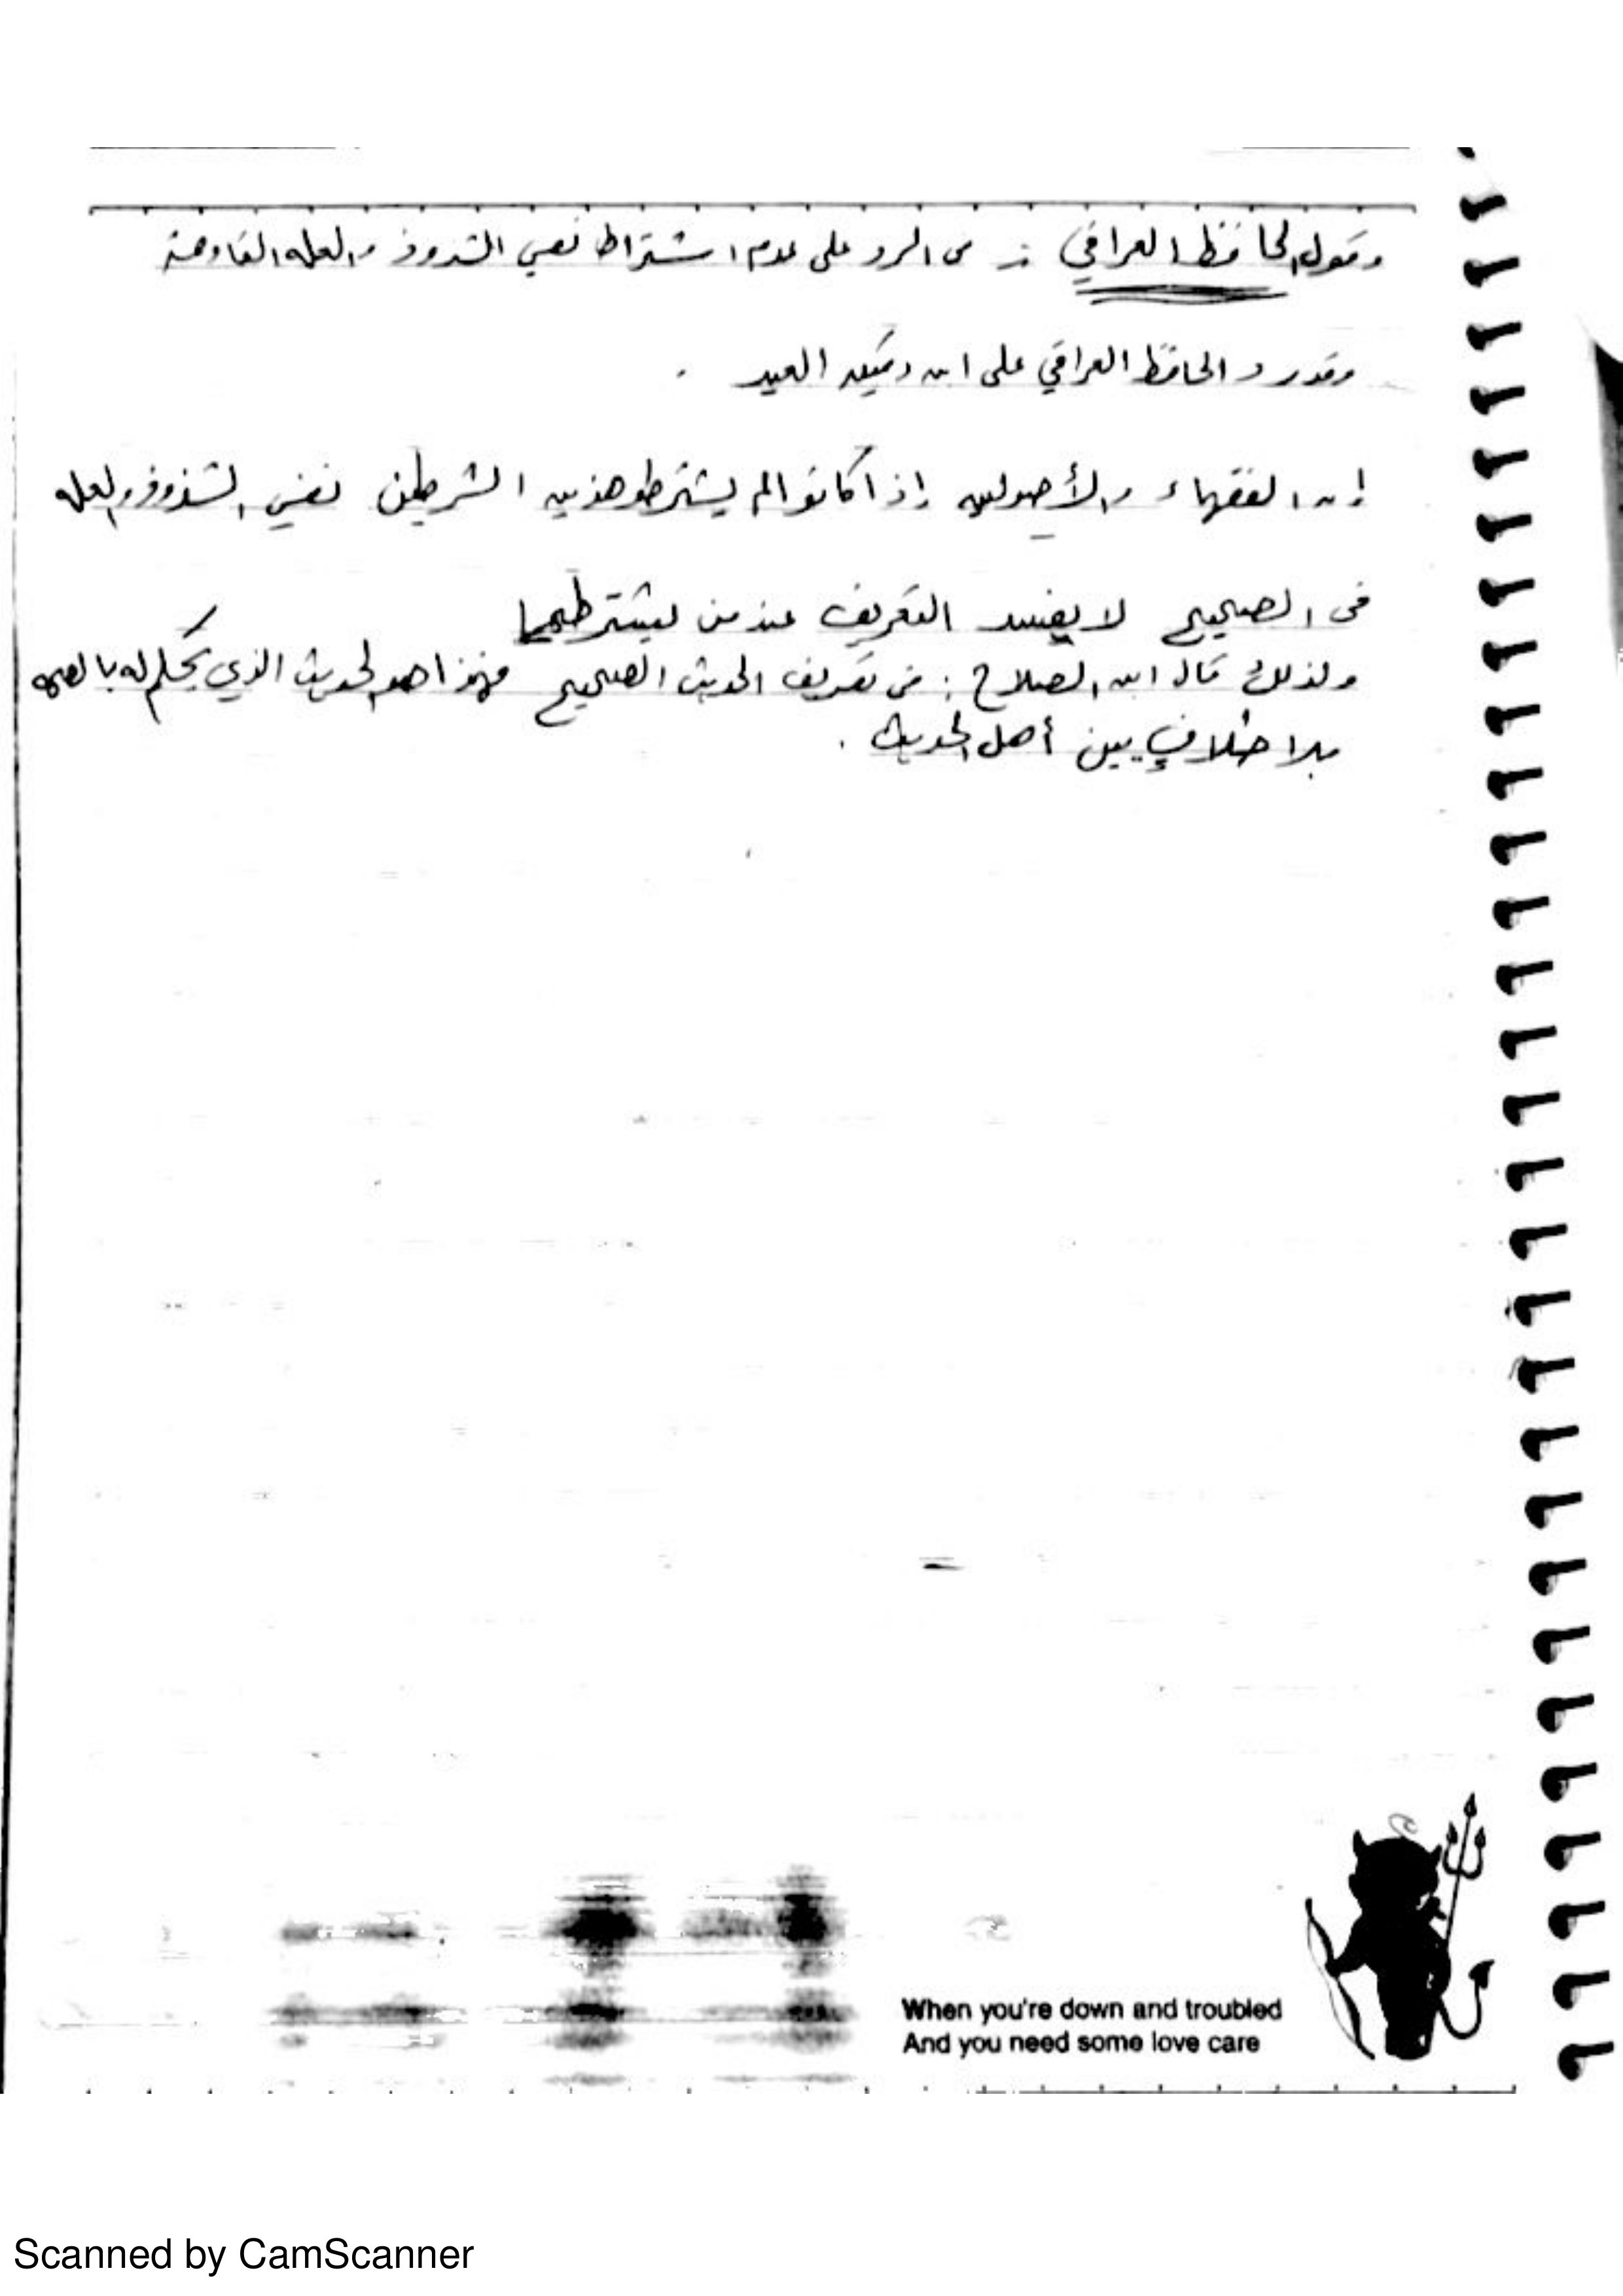 وقول الحافظ العراقي : في الرد على عدم اشتراط نفي الشذوذ والعله القادحة
وقد رد الحافظ العراقي على ابن دقيق العيد .
إن الفقهاء والأصوليين إذا كانوا لم يشترطوا هذين الشرطين نفي الشذوذ والعله
في الصحيح لا يفسد التعريف عند من يشترطهما
ولذلك قال ابن الصلاح : في تعريف الحديث الصحيح فهذا هو الحديث الذي يحكم له بالصحه
بلا خلافٍ بين أهل الحديث .
When you're down and troubled
And you need some love care
Scanned by CamScanner